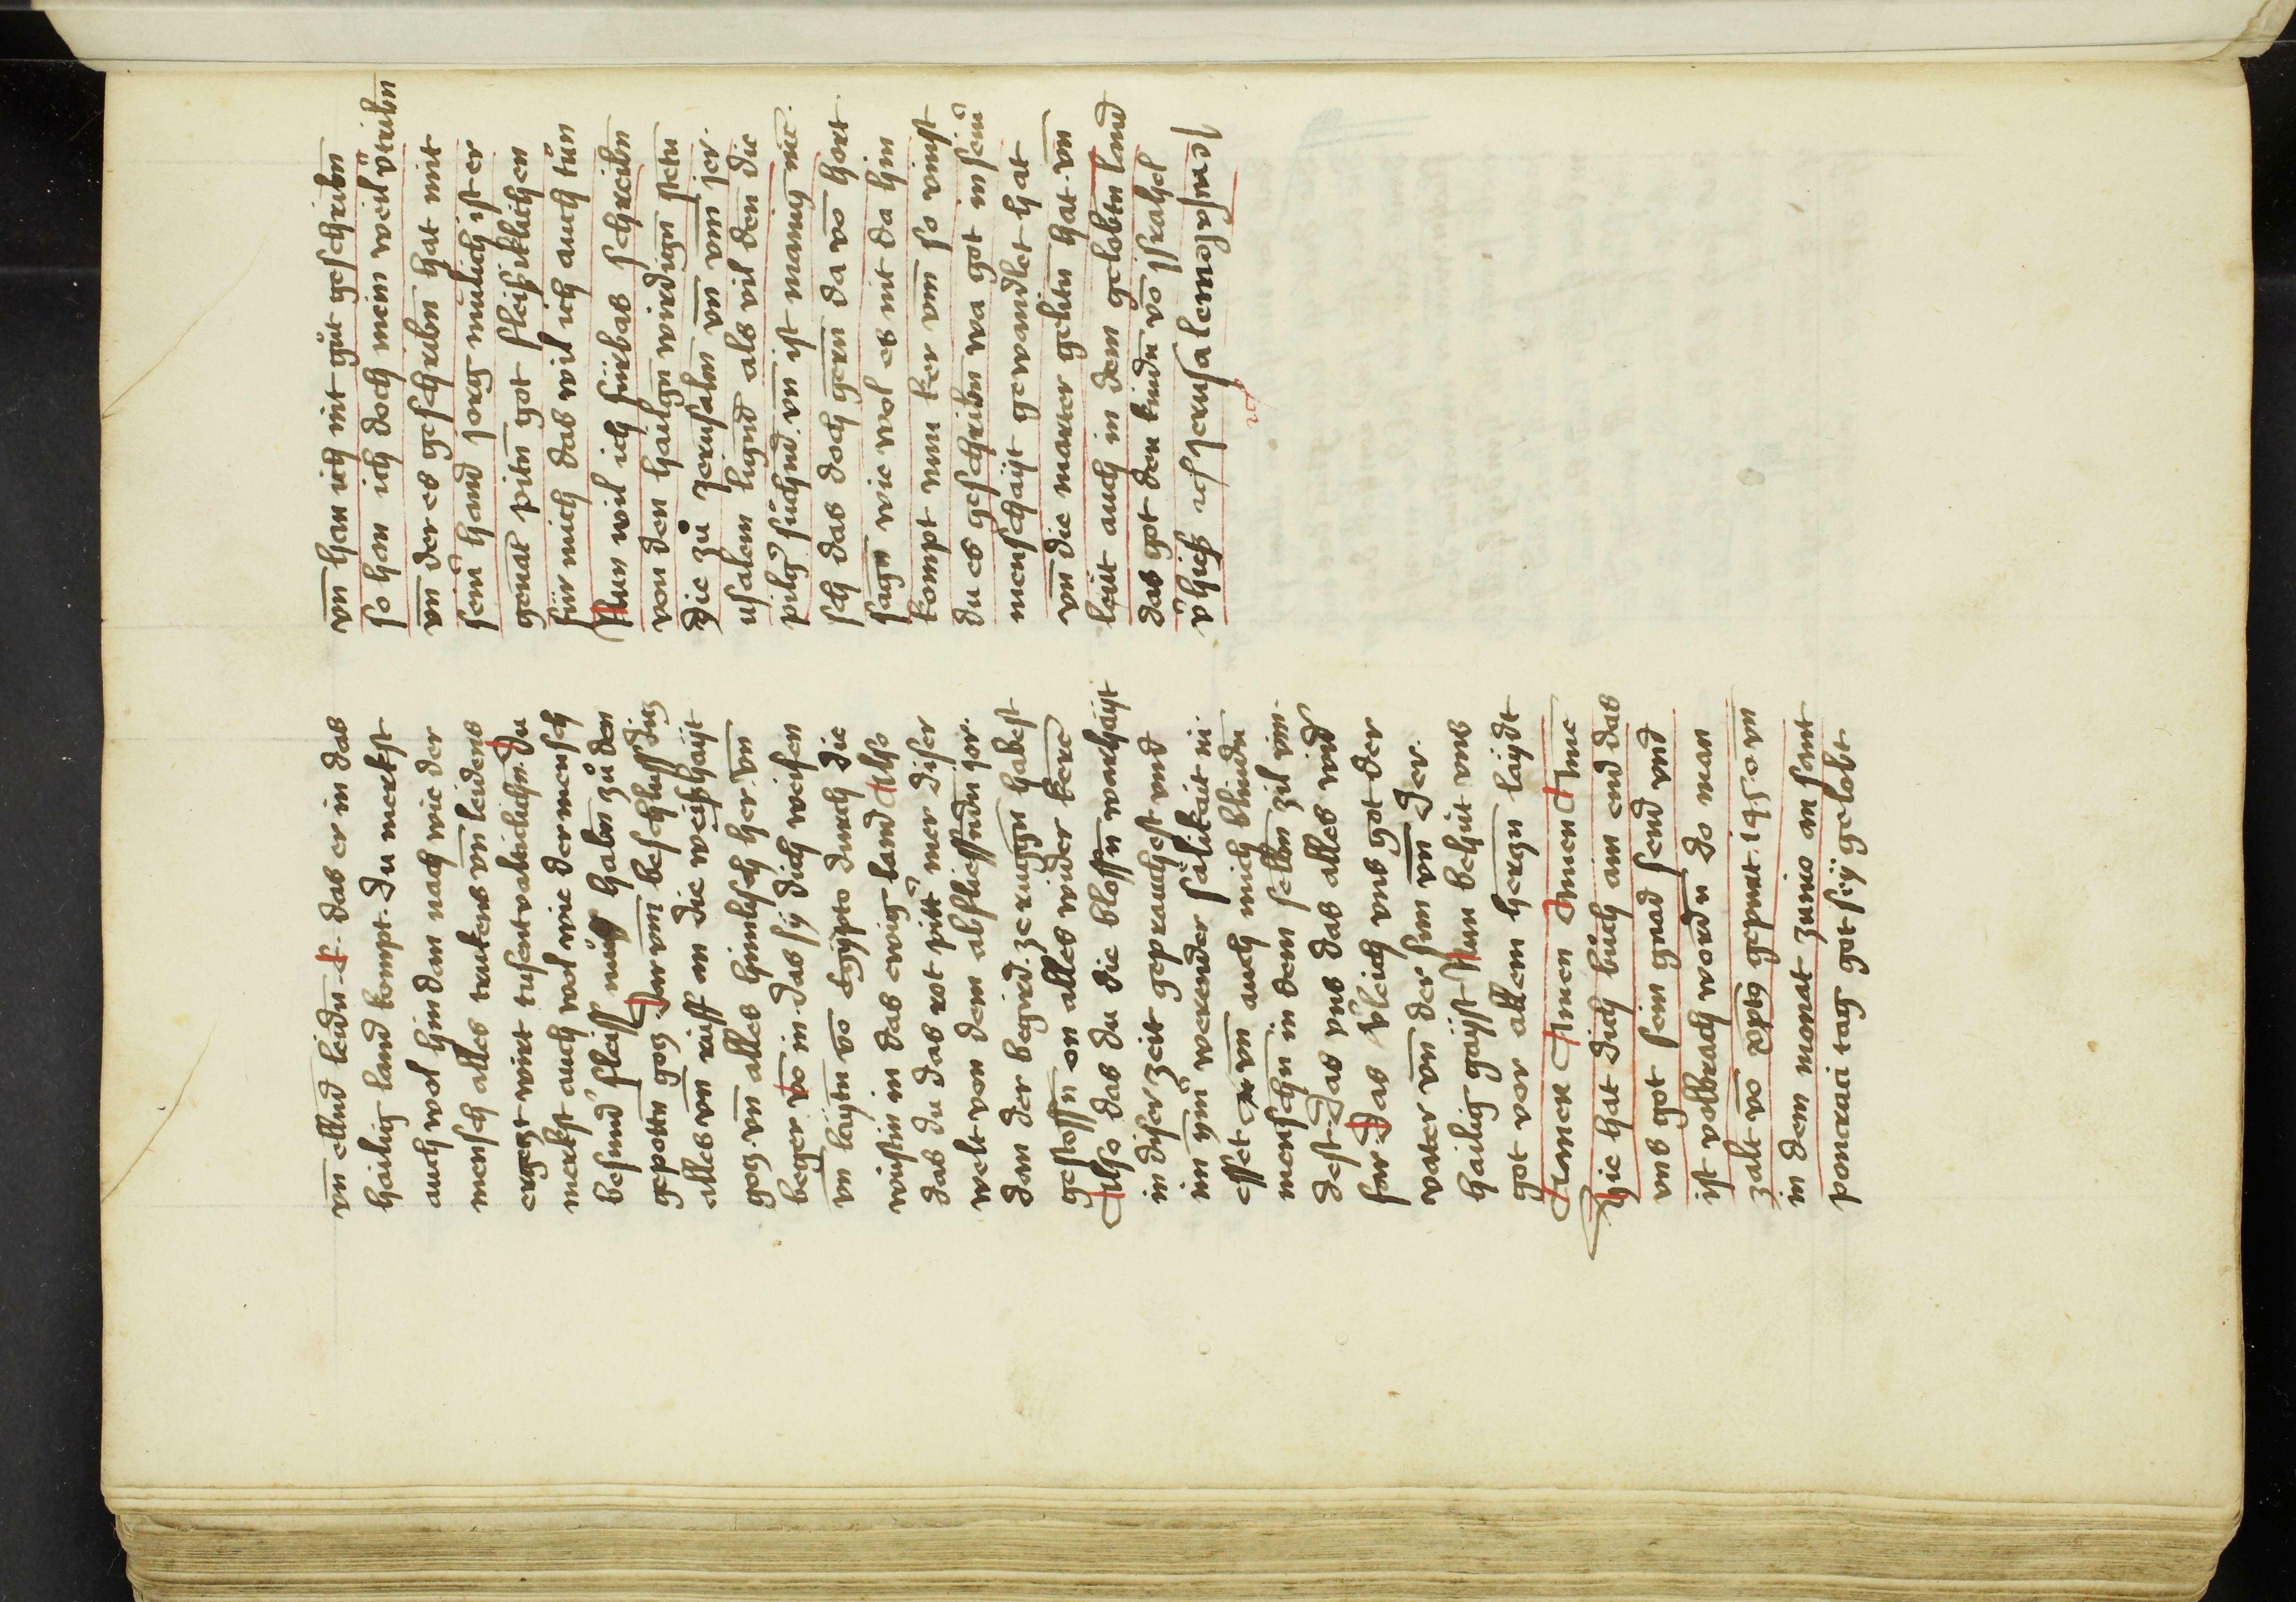 vn̄ ellend leidn̄ ·τ· das er in das
hailig land kompt. Du merckst
auch wol hin dan nach wie der
mensch alles trukens vn̄ leidens
ergetzt wirt tusentvaltiklichn̄. Du
merkst auch wol wie der mensch
besund' fleiss müss habn̄ zů den
gepottn̄ gotz Dar vm̄ beschluss diez
alles vn̄ rüff an die weißhayt
gotz. vn̄ alles himlisch her. vn̄
beger vō in. das sÿ dich weisen
vn̄ laÿtn̄ vō Egÿpto durch die
wüstin in das ewig land Also
das du das rot pitt' mer diser
welt von dem abfliessendn̄ jor.
dan der begird. ze ruggn̄ habest
gestossn̄ on alles wider kere
Also das du die blossn̄ warhaÿt
in diser zeit geprauchest vnd
im ym̄' werender sälikait ni
esset vn̄ auch mich blindn̄
menschn̄ in dem selbn̄ zil vin-
dest Das vns das alles wid'
far Das v'leich vns got der
vater vn̄ der sun vn̄ Der.
hailig gaÿst Nun behüt vns
got vor allem hertzn̄ laÿdt
Amen Amen Amen Ame
Hie hat dich bůch ain end das
vns got sein gnad send vnd
ist volbracht wordn̄ do man
zalt vō xp̄i gepurt. 1450 vn̄
in dem monat zunio an sant
pancraci tag got sÿ gelobt
vn̄ han ich nit gůt geschribn̄
so han ich doch mein weil v'tribn̄
vn̄ der es geschribn̄ hat mit
sein' hand jorg mülich ist er
genat pitn̄ got fleißiklichen
für mich das wil ich auch tůn
Nun wil ich fürbas schreibn̄
von den hailgn̄ wirdign̄ stetn̄
Die zů Jerusalm̄ vn̄ vm̄ jer.
usalem lignd als vil den die
pilg' süchnd. vn̄ ist manig me.
sch das doch gern̄ da vō hort.
sagn̄ wie wol es nit da hin
kompt nun ker vm̄ so vinst
du es geschribn̄ wa got in sein'
menschaÿt gewandlet hat
vn̄ die marter gelitn̄ hat. vn̄
leüt auch in dem gelobtn̄ land
das got den kindn̄ vō jsrahel
v'hieß Jerusalem Jerusalem